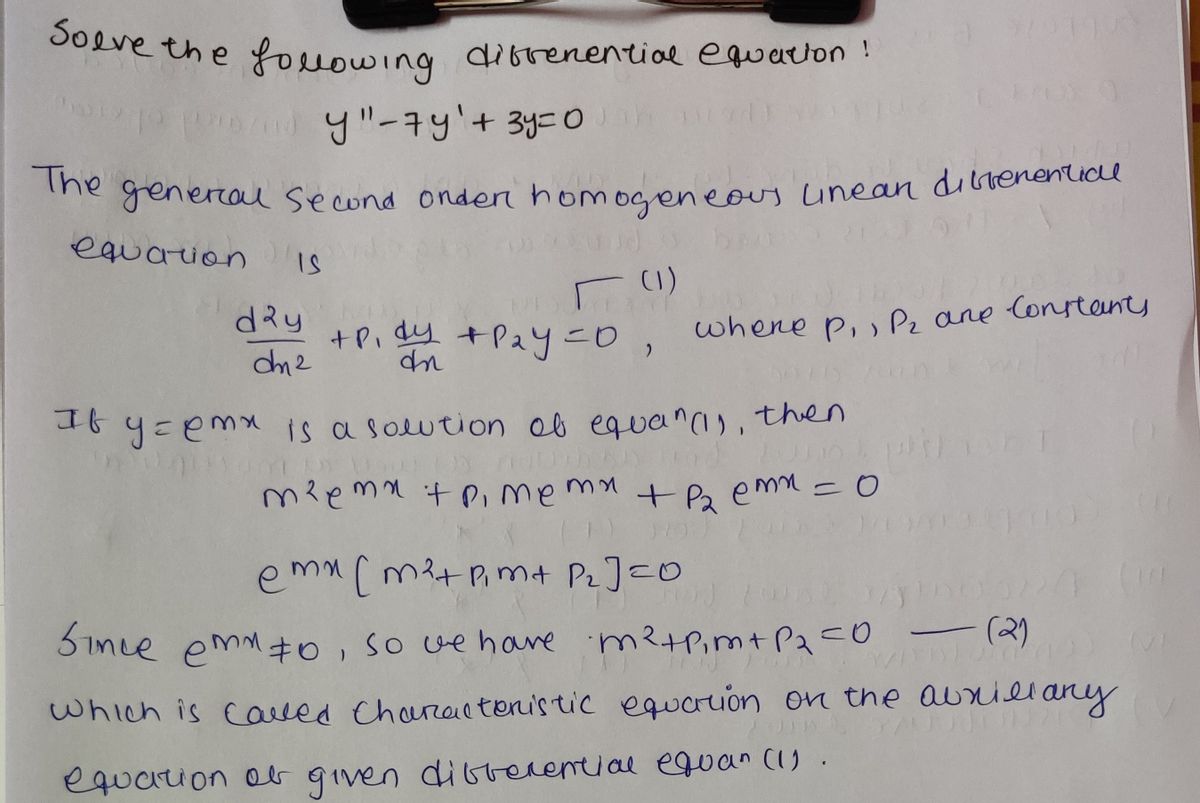 Solve the following differential equation !
y"-7y'+3y=0
The general second order homogeneous linear differential
equation is
(1)
d²y/dx² + P₁ dy/dx + P₂y = 0, where P₁, P₂ are constants
If y = eᵐˣ is a solution of equaⁿ(1), then
m²eᵐˣ + P₁meᵐˣ + P₂eᵐˣ = 0
eᵐˣ[m²+P₁m+P₂]=0
Since eᵐˣ≠0, so we have m²+P₁m+P₂=0 — (2)
which is called characteristic equation or the auxiliary
equation of given differential equan (1).